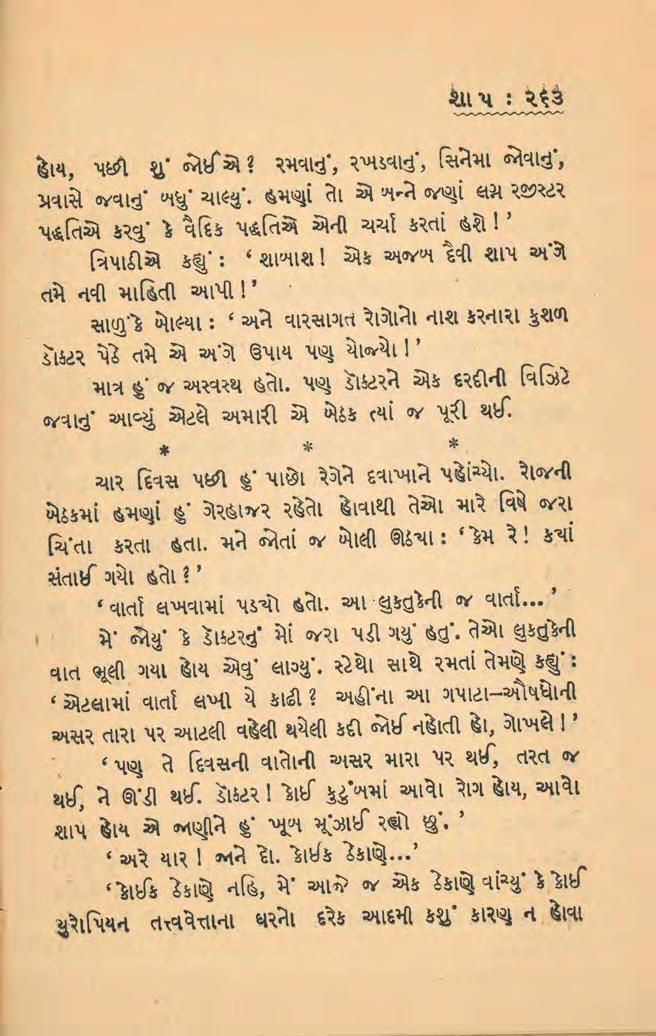 શાપ : ૨૬૩
હોય, પછી શું જોઈએ? રમવાનું, રખડવાનું, સિનેમા જોવાનું,
પ્રવાસે જવાનું બધું ચાલ્યું. હમણાં તો એ બન્ને જણાં લગ્ન રજીસ્ટર
પદ્ધતિએ કરવું કે વૈદિક પદ્ધતિએ એની ચર્ચા કરતાં હશે!’
ત્રિપાઠીએ કહ્યું : ‘શાબાશ! એક અજબ દૈવી શાપ અંગે
તમે નવી માહિતી આપી!’
સાળુંકે બોલ્યા : ‘અને વારસાગત રોગોનો નાશ કરનારા કુશળ
ડૉક્ટર પેઠે તમે એ અંગે ઉપાય પણ યોજ્યો!’
માત્ર હું જ અસ્વસ્થ હતો. પણ ડૉક્ટરને એક દરદીની વિઝિટે
જવાનું આવ્યું એટલે અમારી એ બેઠક ત્યાં જ પૂરી થઈ.
* * *
ચાર દિવસ પછી હું પાછો રેગેને દવાખાને પહોંચ્યો. રોજની
બેઠકમાં હમણાં હું ગેરહાજર રહેતો હોવાથી તેઓ મારે વિષે જરા
ચિંતા કરતા હતા. મને જોતાં જ બોલી ઊઠ્યા : ‘કેમ રે! ક્યાં
સંતાઈ ગયો હતો?’
‘વાર્તા લખવામાં પડ્યો હતો. આ લુકતુકેની જ વાર્તા...’
મેં જોયું કે ડૉક્ટરનું મોં જરા પડી ગયું હતું. તેઓ લુકતુકેની
વાત ભૂલી ગયા હોય એવું લાગ્યું. સ્ટેથો સાથે રમતાં તેમણે કહ્યું :
‘એટલામાં વાર્તા લખી યે કાઢી? અહીંના આ ગપાટા—ઔષધોની
અસર તારા પર આટલી વહેલી થયેલી કદી જોઈ નહોતી હો, ગોખલે!’
‘પણ તે દિવસની વાતોની અસર મારા પર થઈ, તરત જ
થઈ, ને ઊંડી થઈ. ડૉક્ટર! કોઈ કુટુંબમાં આવો રોગ હોય, આવો
શાપ હોય એ જાણીને હું ખૂબ મૂંઝાઈ રહ્યો છું.’
‘અરે યાર! જાને દો. કોઈક ઠેકાણે...’
‘કોઈક ઠેકાણે નહિ, મેં આજે જ એક ઠેકાણે વાંચ્યું કે કોઈ
યુરોપિયન તત્ત્વવેત્તાના ઘરનો દરેક આદમી કશું કારણ ન હોવા